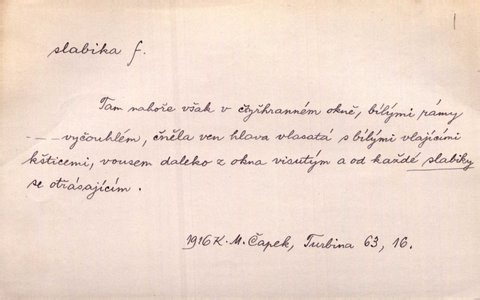 slabika f.
Tam nahoře však v čtyřhranném okně, bílými rámy
– – – vyčouhlém, čněla ven hlava vlasatá s bílými vlajícími
kšticemi, vousem daleko z okna visutým a od každé slabiky
se otřásajícím.
1916 K. M. Čapek, Turbina 63, 16.